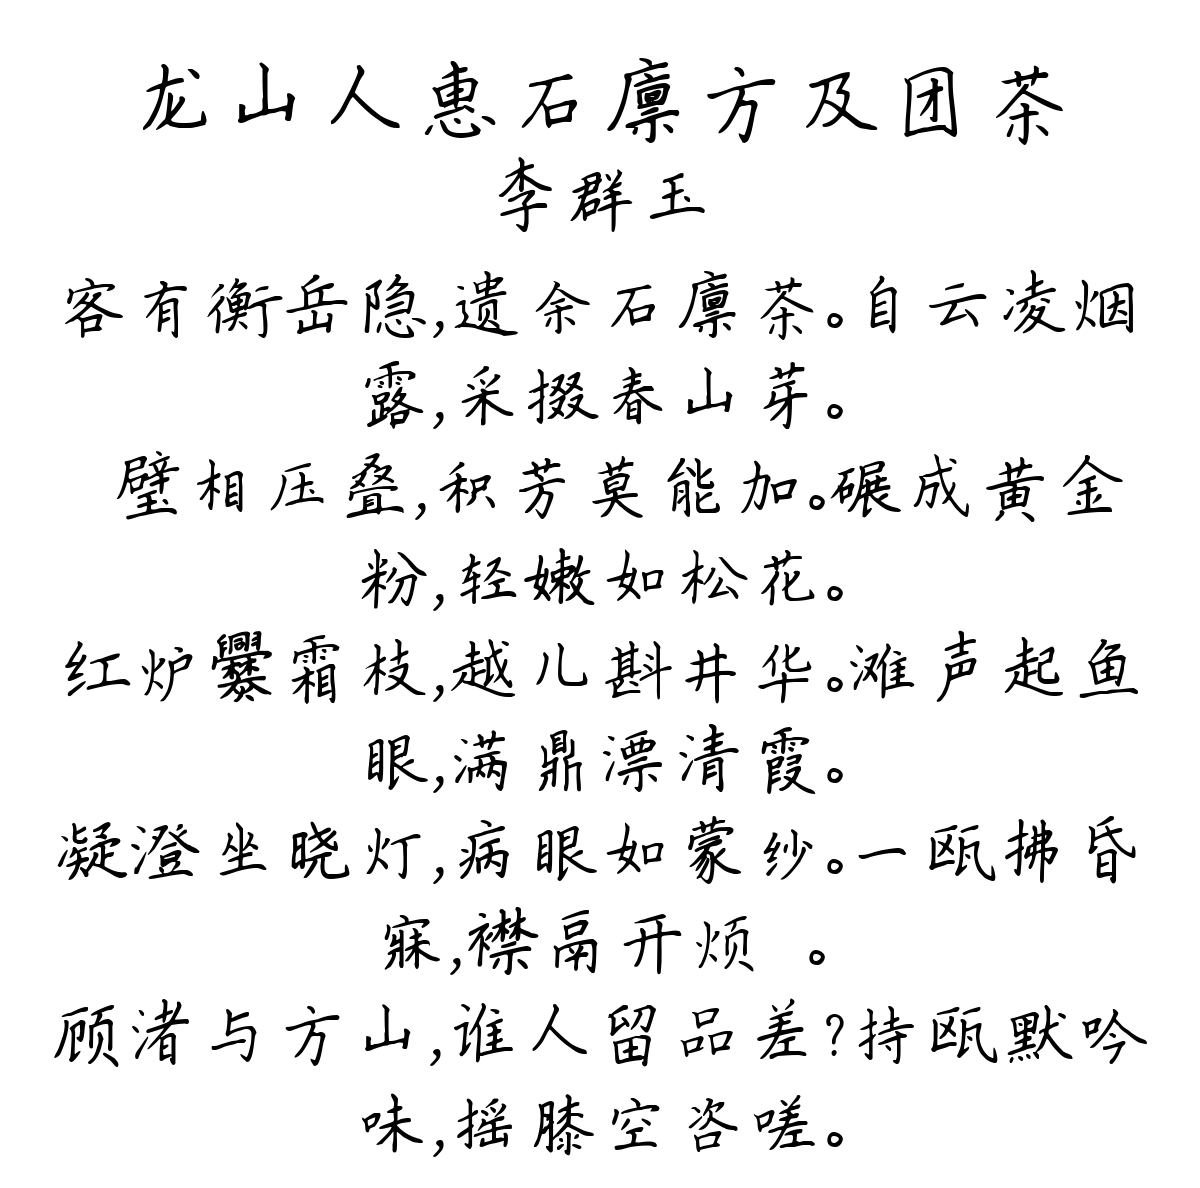 龙山人惠石廪方及团茶
李群玉
客有衡岳隐,遗余石廪茶。自云凌烟
露,采掇春山芽。
璧相压叠,积芳莫能加。碾成黄金
粉,轻嫩如松花。
红炉爨霜枝,越儿斟井华。滩声起鱼
眼,满鼎漂清霞。
凝澄坐晓灯,病眼如蒙纱。一瓯拂昏
寐,襟鬲开烦 。
顾渚与方山,谁人留品差?持瓯默吟
味,摇膝空咨嗟。